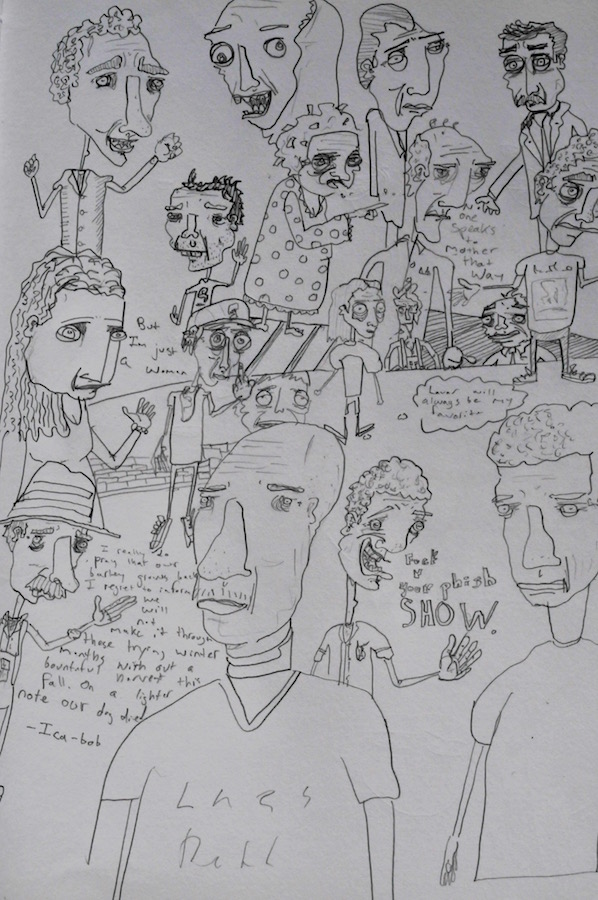 one
speaks
to
Mother
that
way
But
I'm just
a women
Lover will
always be my
favorite
I really do
pray that our
barley grows back
I regret to inform
we
will
not
make it through
these trying winter
months with out a
bountiful harvest this
fall. On a lighter
note our dog died
-Ica-bob
your phish
SHOW.